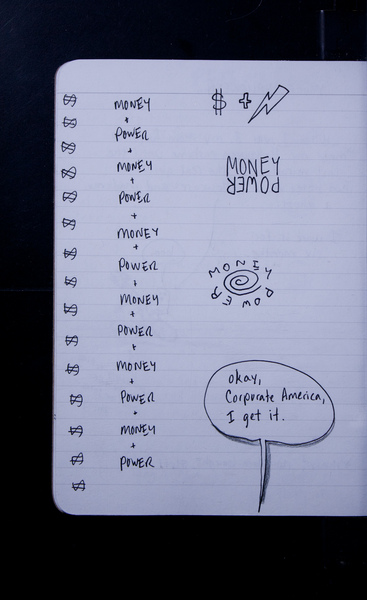 $
$
$
$
$
$
$
$
$
$
$
$
$
$
$
MONEY
+
POWER
+
MONEY
+
POWER
+
MONEY
+
POWER
+
MONEY
+
POWER
+
MONEY
+
POWER
+
MONEY
+
POWER
$ +
MONEY
POWER
MONEY
POWER
okay,
Corporate America,
I get it.